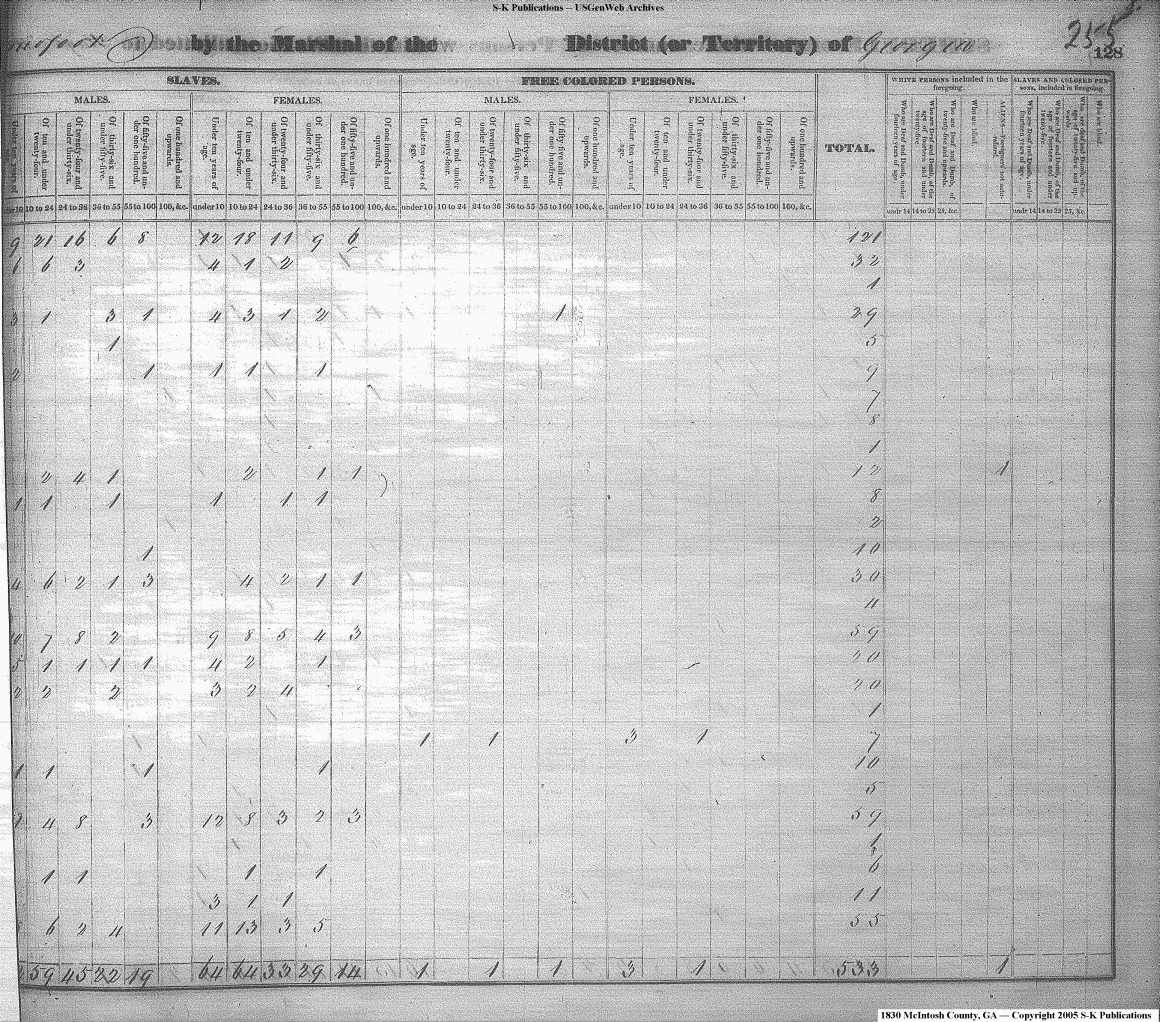 S-K Publications -- USGenWeb Archives
by the Marshal of the District (or Territory) of Georgia 255
128
SLAVES. FREE COLORED PERSONS. TOTAL. WHITE PERSONS included in the foregoing. SLAVES AND COLORED PERsons, included in foregoing.
MALES. FEMALES. MALES. FEMALES.
Of ten and under twenty-four. Of twenty-four and under thirty-six. Of thirty-six and under fifty-five. Of fifty-five and under one hundred. Of one hundred and upwards. Under ten years of age. Of ten and under twenty-four. Of twenty-four and under thirty-six. Of thirty-six and under fifty-five. Of fifty-five and under one hundred. Of one hundred and upwards. Under ten years of age. Of ten and under twenty-four. Of twenty-four and under thirty-six. Of thirty-six and under fifty-five. Of fifty-five and under one hundred. Of one hundred and upwards. Under ten years of age. Of ten and under twenty-four. Of twenty-four and under thirty-six. Of thirty-six and under fifty-five. Of fifty-five and under one hundred. Of one hundred and upwards.
10 to 24 24 to 36 36 to 55 55 to 100 100, &c. under 10 10 to 24 24 to 36 36 to 55 55 to 100 100, &c. under 10 10 to 24 24 to 36 36 to 55 55 to 100 100, &c. under 10 10 to 24 24 to 36 36 to 55 55 to 100 100, &c. undr 14 14 to 25 25, &c. undr 14 14 to 25 25, &c
9 21 16 6 8 12 18 11 9 6 121
6 3 4 1 2 32
1
3 1 3 1 4 3 1 2 1 29
1 5
2 1 1 1 1 9
7
8
1
2 4 1 2 1 1 12 1
1 1 1 1 1 1 8
2
1 10
4 6 2 1 3 4 2 1 1 30
4
10 7 8 2 9 8 5 4 3 59
5 1 1 1 1 4 2 1 20
2 2 2 3 2 4 20
1
1 1 3 1 7
1 1 1 1 10
5
4 8 3 12 8 3 2 3 59
1
1 1 1 1 6
3 1 1 11
6 2 4 11 13 3 5 55
59 45 22 19 64 64 33 29 14 1 1 1 3 1 533 1
1830 McIntosh County, GA — Copyright 2005 S-K Publications